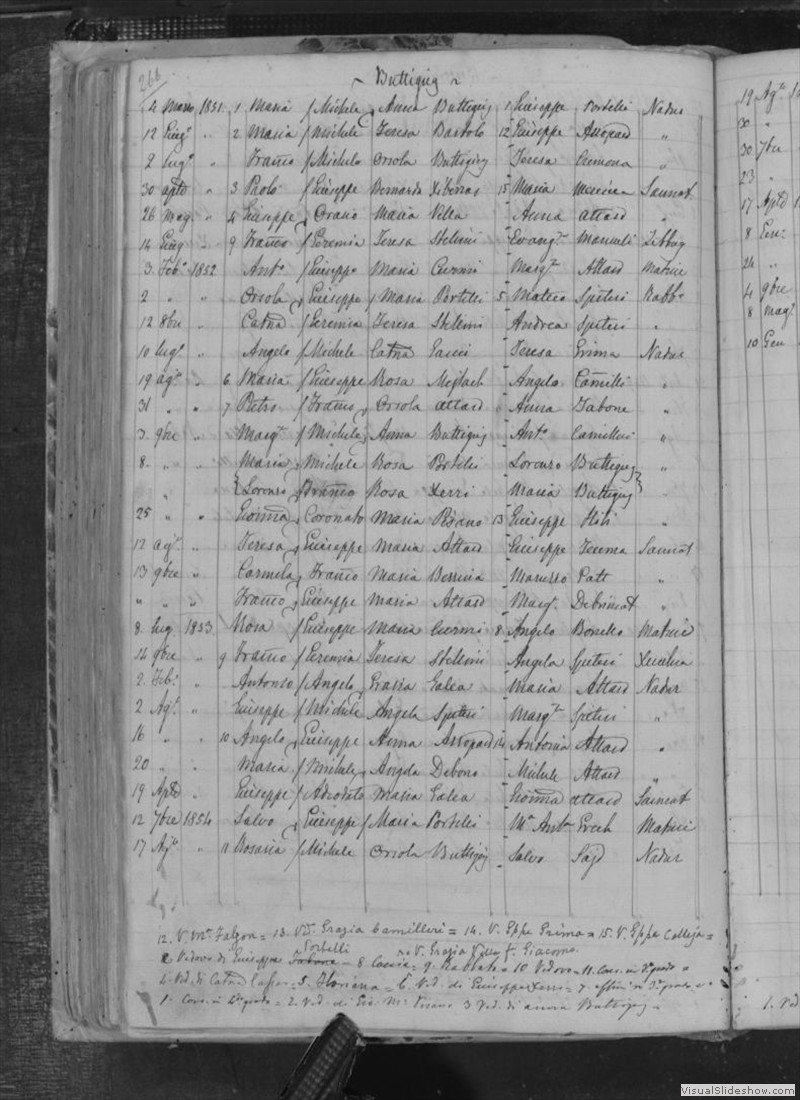 266
Buttigieg
4 Marzo 1851 1 Maria f Michele Anna Buttigieg 1 Giuseppe Portelli Nadur
12 Giug° " 2 Maria f Michele Teresa Bartolo 12 Giuseppe Azzopard "
2 lug° " Franco f Michele Orsola Buttigieg Teresa Cremona "
30 aple " 3 Paolo f Giuseppe Bernarda Xiberras 15 Maria Sannat
26 mag. " 4 Giuseppe Orazio Maria Vella Anna Attard "
14 Giug " 9 Franco f Geremia Teresa Stellini Evang. Manueli Zebbug
3 Feb° 1852 Ant° f Giuseppe Maria Curmi Marg. Attard Matrice
2 " " Orsola Giuseppe f Maria Portelli 5 Matteo Spiteri Rabb°
12 8bre " Catna f Geremia Teresa Stellini Andrea Spiteri "
10 lug° " Angelo f Michele Catna Teresa Grima Nadur
19 ag° " 6 Maria f Giuseppe Rosa Mejlach Angelo Camilli "
31 " " 7 Pietro f Franco Orsola Attard Anna Tabone "
3 9bre " Marg. f Michele Anna Buttigieg Ant° Camilleri "
8 " " Maria Michele Rosa Portelli Lorenzo Buttigieg "
" Lorenzo Franco Rosa Xerri Maria Buttigieg "
25 " " Coronato Maria Pisano 13 Giuseppe Hili "
12 ag° " Teresa Giuseppe Maria Attard Giuseppe Sannat
13 9bre " Carmela Franco Maria "
" " " Franco Giuseppe Maria Attard Marg. Debrincat "
8 lug 1853 Rosa f Giuseppe Maria Curmi 8 Angelo Bonello Matrice
14 9bre " 9 Franco f Geremia Teresa Stellini Angela Spiteri Xeuchia
2 Feb° " Antonio f Angelo Grazia Galea Maria Attard Nadur
2 Ag° " Giuseppe f Michele Angela Spiteri Marg. Spiteri "
16 " " 10 Angelo Giuseppe Anna Azzopard 14 Antonia Attard "
20 " " Maria f Michele Angela Debono Michele Attard "
19 Aple Giuseppe f Adeodato Maria Galea Attard Sannat
12 7bre 1854 Salvo Giuseppe f Maria Portelli M. Ant. Grech Matrice
17 Ag° " 11 Rosaria f Michele Orsola Buttigieg Salvo Sajd Nadur
12. V. M. Falzon = 13. Vd. Grazia Camilleri = 14. V. Gppe Grima = 15. V. Gppe Calleja =
Portelli V. Grazia Vella f. Giacomo
Vedovo di Giuseppe Tabone = 8 = 9. Rabbato = 10 Vedovo = 11. Cons. in 3° grado =
4. Vd. di Catna = 5. Floriana = 6. Vd. di Giuseppe Xerri = 7. affini in 3° grado =
1. Cons. in 4° grado = 2. Vd. di M. Pisano 3 Vd. di Anna Buttigieg =
19 Ag°
30 "
30 7bre
23 "
17 Aple
8 Gen.
24 "
4 9bre
8 mag°
10 Gen
1. Vd
VisualSlideshow.com